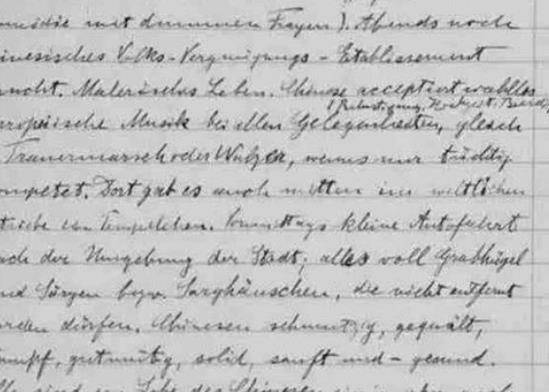 mödie mit dummen Fragen). Abends noch
inesisches Volks-Vergnügungs-Etablissement
sucht. Malerisches Leben. Chinese acceptiert wahllos
(Belustigung, Hochzeit, Beerd
ropäische Musik bei allen Gelegenheiten, gleich
Trauermarsch oder Walzer, wenns nur tüchtig
ompetet. Dort gab es auch mitten im weltlichen
triebe ein Tempelchen. Vormittags kleine Autofahrt
ach der Umgebung der Stadt; alles voll Grabhügel
nd Särgen bezw. Sarghäuschen, die nicht entfernt
rden dürfen. Chinesen schmutzig, gequält,
umpf, gutmütig, solid, sanft und - gesund.
sind Lobe des Chinesen